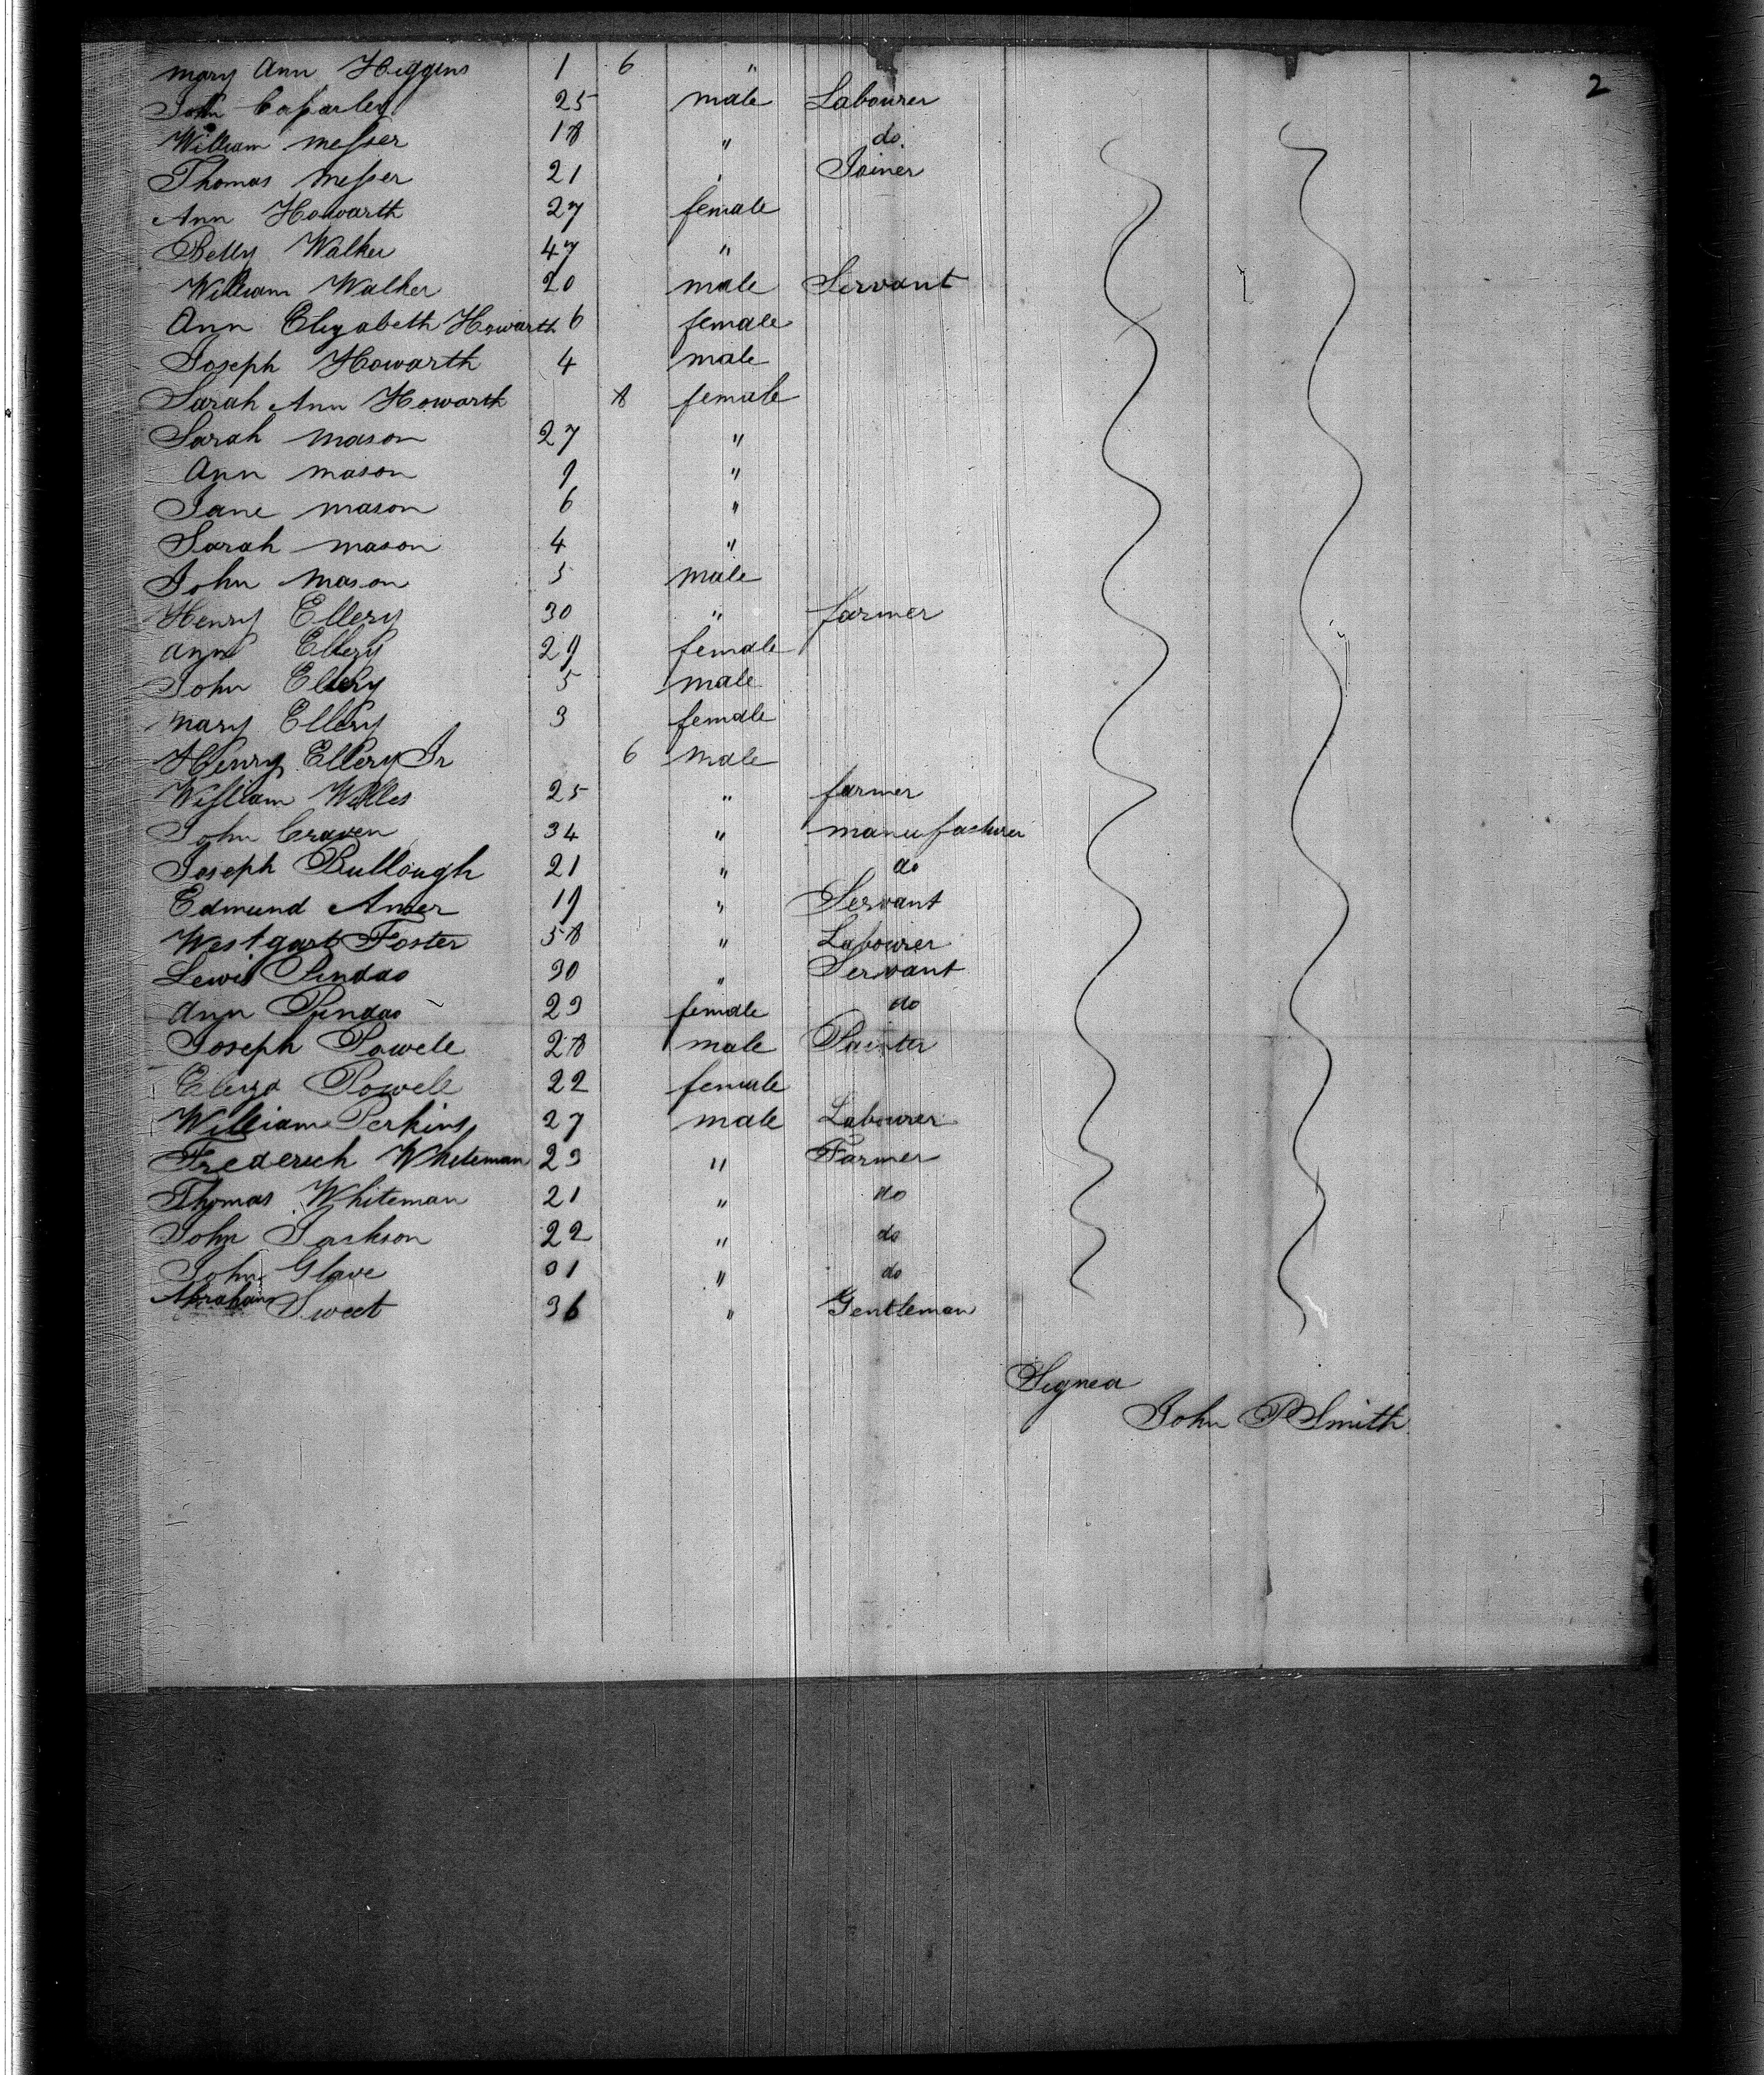 2
Mary Ann Higgins 1 6 "
John 25 male Labourer
William Messer 18 " do.
Thomas Messer 21 " Joiner
Ann Howarth 27 female
Betty Walker 47 "
William Walker 20 male Servant
Ann Elizabeth Howarth 6 female
Joseph Howarth 4 male
Sarah Ann Howarth 8 female
Sarah Mason 27 "
Ann Mason 9 "
Jane Mason 6 "
Sarah Mason 4 "
John Mason 5 male
Henry Ellery 30 " farmer
Ann Ellery 29 female
John Ellery 5 male
Mary Ellery 3 female
Henry Ellery Jr 6 male
William Willes 25 " farmer
John Craven 34 " manufacturer
Joseph Bullough 21 " do
Edmund 19 " Servant
Westgart Foster 58 " Labourer
Lewis 30 " Servant
Ann 23 female do
Joseph Powell 28 male Painter
Eliza Powell 22 female
William Perkins 27 male Labourer
Frederick Whiteman 23 " Farmer
Thomas Whiteman 21 " do
John Jackson 22 " do
John Glave 31 " do
Abraham Sweet 36 " Gentleman
Signed
John P Smith